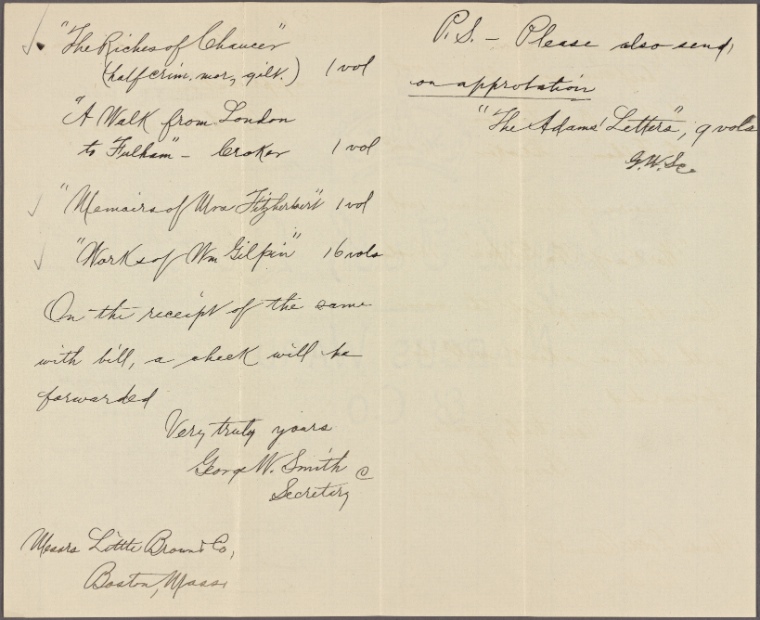 "The Riches of Chaucer"
(half crim. mor, gilt.) 1 vol
"A Walk from London
to Fulham" - Croker 1 vol
"Memoirs of Mrs Fitzherbert" 1 vol
"Works of Wm Gilpin" 16 vols
On the receipt of the same
with bill, a check will be
forwarded
Very truly yours
George W. Smith
Secretary
Messrs Little Brown & Co,
Boston, Mass.
P.S. - Please also send,
on approbation
"The Adams' Letters", 9 vols
G.W.S.